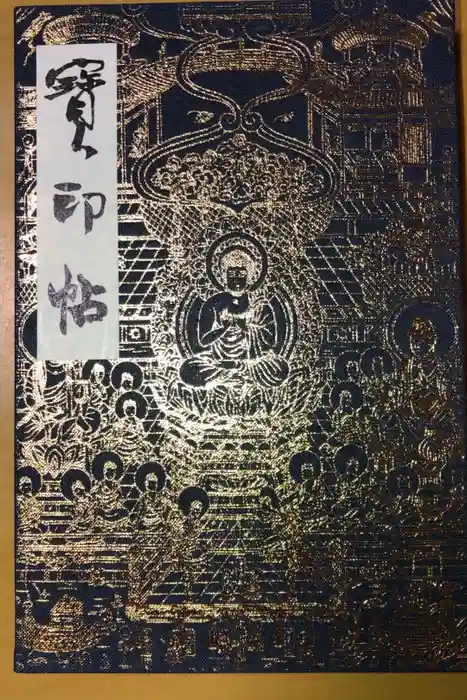 寶印帖